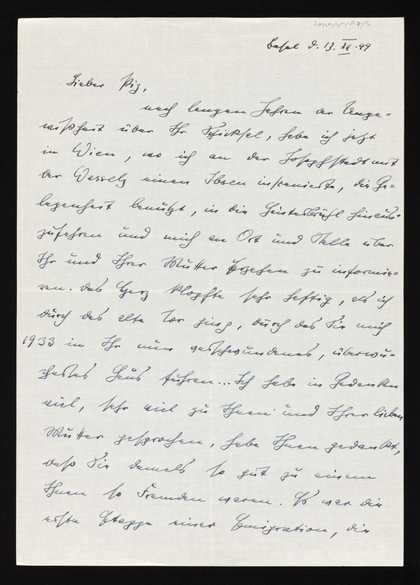 Basel d. 13. IX. 49
Lieber Piz,
nach langen Jahren der Unge-
wißheit über Ihr Schicksal, habe ich jetzt
in Wien, wo ich an der Josephstadt mit
der Wessely einen Ibsen inszenierte, die Ge-
legenheit benützt, in die Hinterbrühl hinaus-
zufahren und mich an Ort und Stelle über
Ihr und Ihrer Mutter Ergehen zu informie-
ren. Das Herz klopfte sehr heftig, als ich
durch das alte Tor ging, durch das Sie mich
1933 in Ihr nun verschwundenes, überwu-
chertes Haus führten... Ich habe in Gedanken
viel, sehr viel zu Ihnen und Ihrer lieben
Mutter gesprochen, habe Ihnen gedankt,
daß Sie damals so gut zu einem
Ihnen so Fremden waren. Es war die
erste Etappe einer Emigration, die